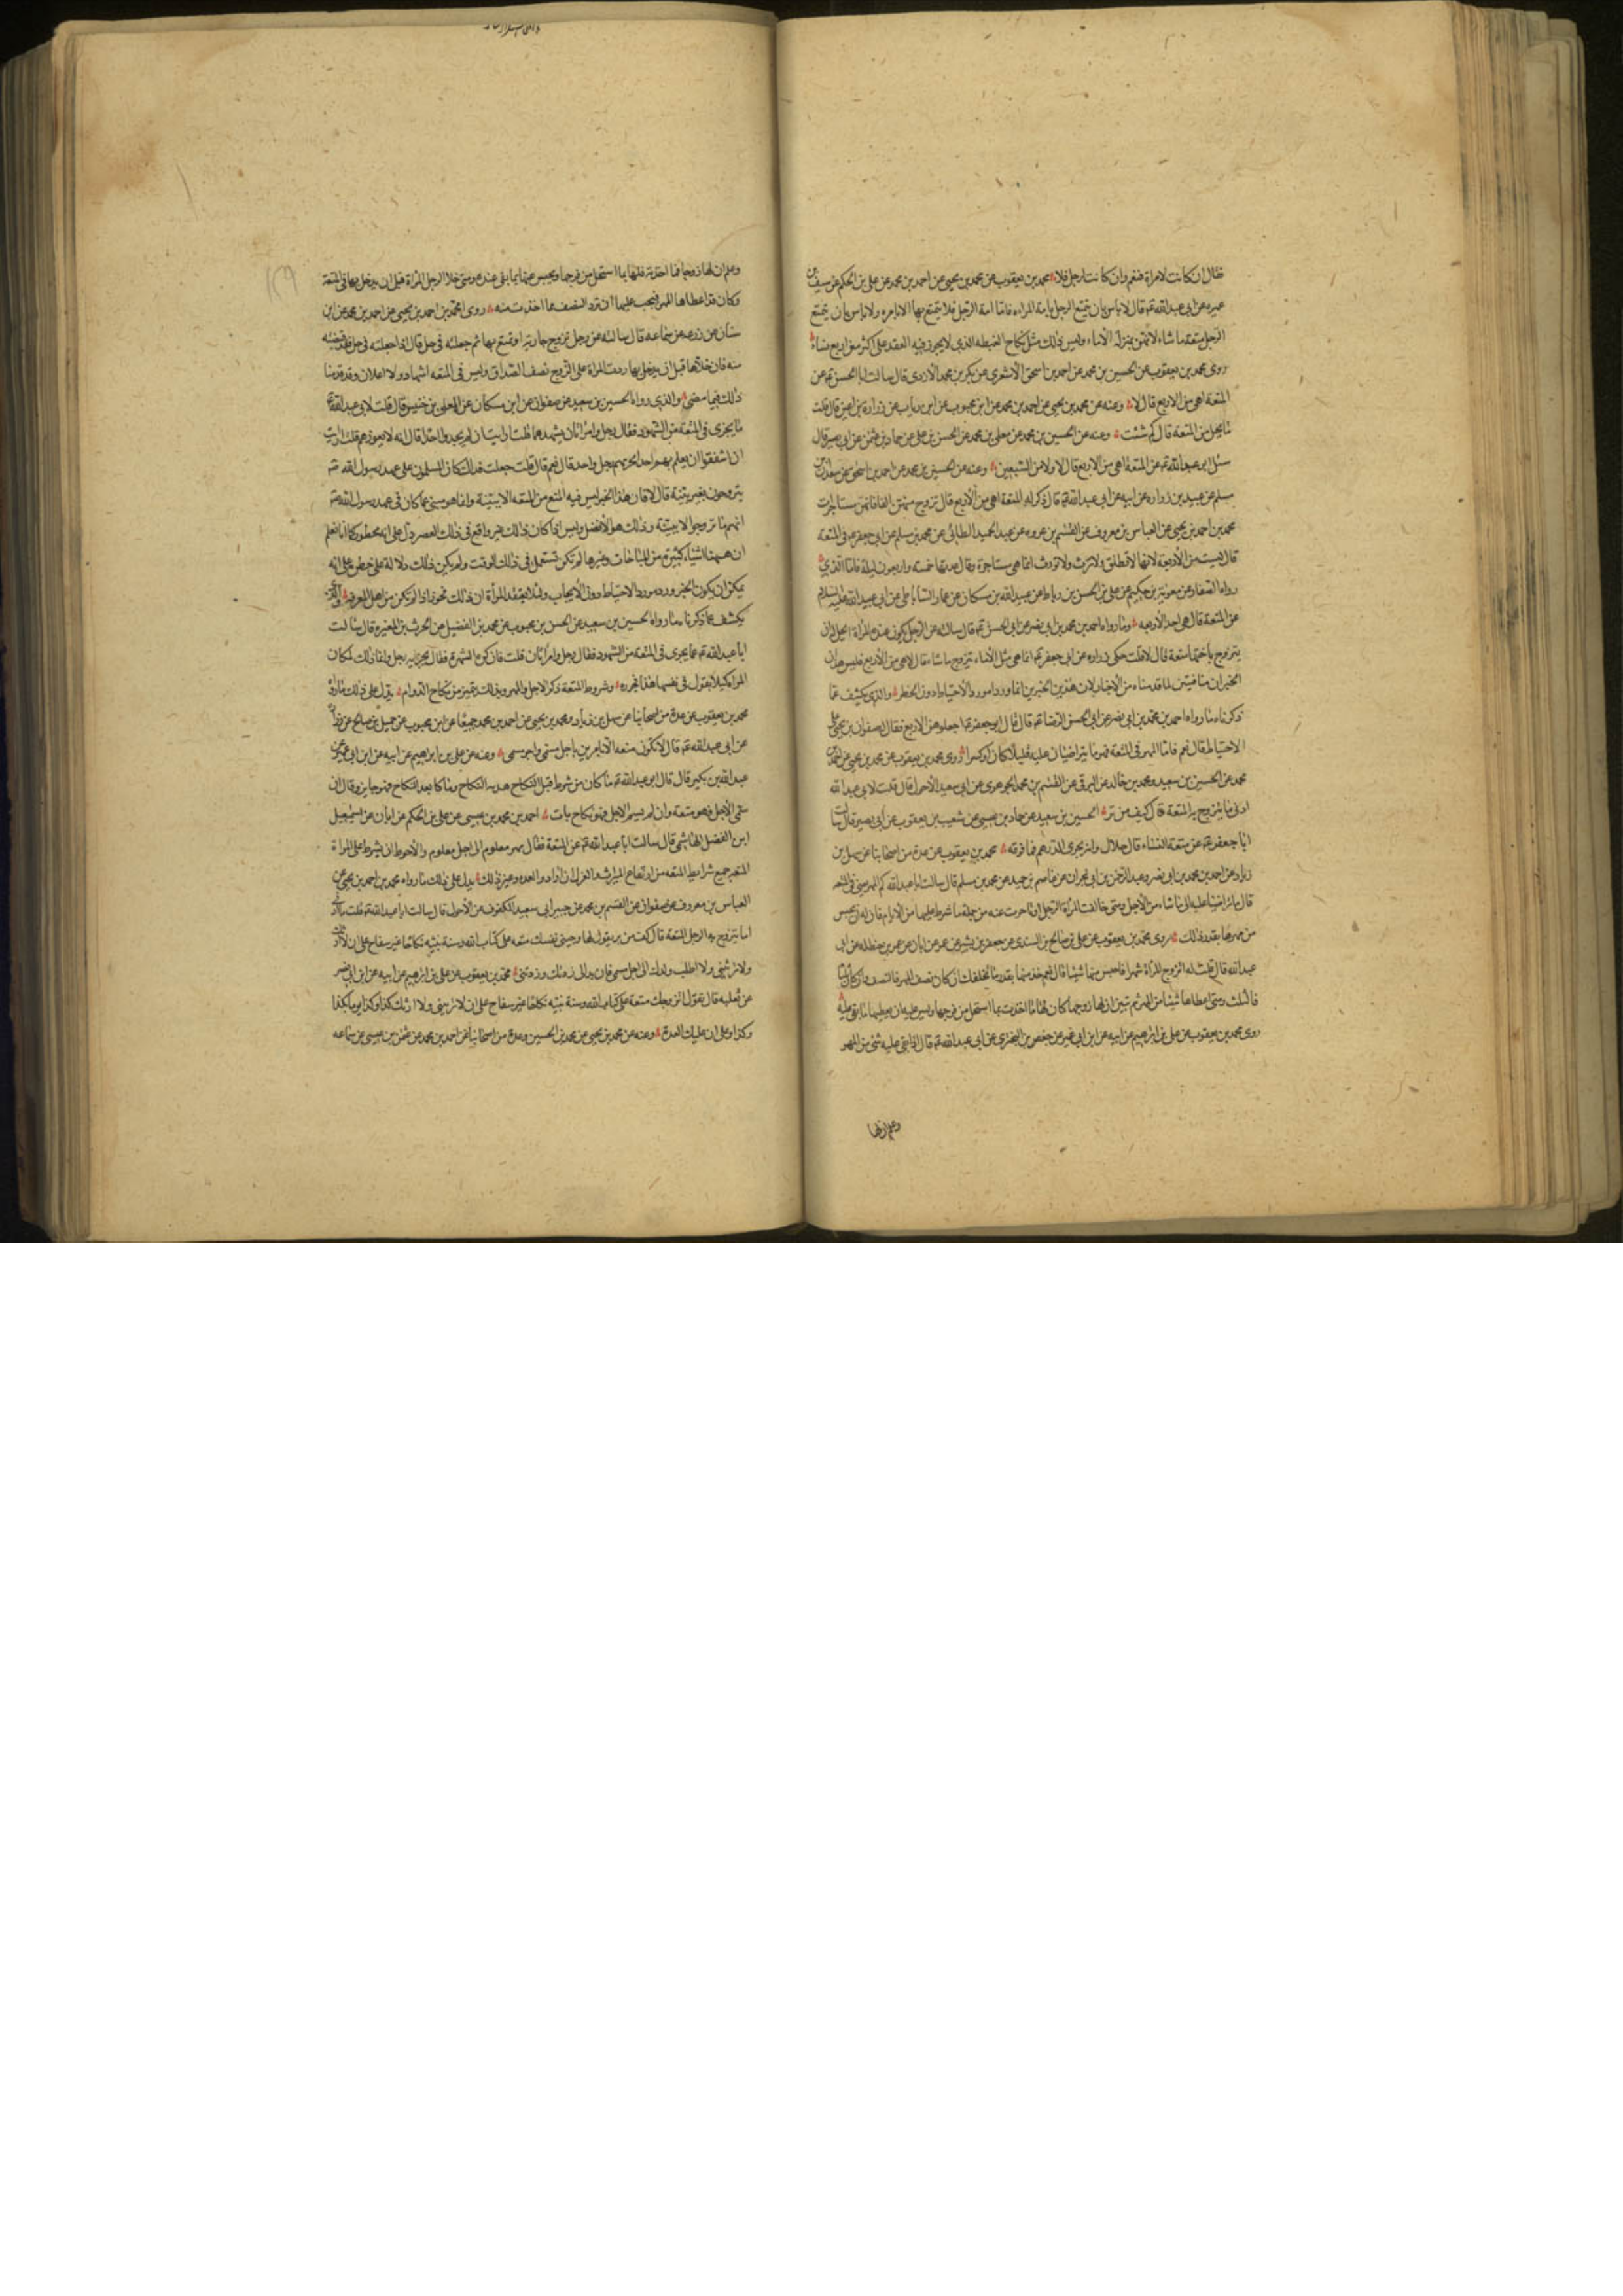 فقال ان كانت لامراة فنعم وان كانت لرجل فلا محمد بن يعقوب عن محمد بن يحيى عن احمد بن محمد عن علي بن الحكم عن سيف بن
عميره عن ابي عبد الله ع قال لا باس بان يتمتع الرجل بامة المراه فاما امة الرجل فلا يتمتع بها الا بامره ولا باس بان يتمتع
الرجل متعة ما شاء لانهن بمنزلة الاماء وليس ذلك مثل نكاح الغبطه الذي لا يجوز فيه العقد على اكثر من اربع نساء
روى محمد بن يعقوب عن الحسين بن محمد عن احمد بن اسحق الاشعري عن بكر بن محمد الازدي قال سالت ابا الحسن ع عن
المتعة اهي من الاربع قال لا وعنه عن محمد بن يحيى عن احمد بن محمد عن ابن محبوب عن ابن رياب عن زرارة بن اعين قال قلت
ما يحل من المتعة قال كم شئت وعنه عن الحسين بن محمد عن معلى بن محمد عن الحسن بن علي عن حماد بن عثمن عن ابي بصير قال
سئل ابو عبد الله ع عن المتعة اهي من الاربع قال لا ولا من السبعين وعنه عن الحسين بن محمد عن احمد بن اسحق عن سعدان بن
مسلم عن عبيد بن زراره عن ابيه عن ابي عبد الله ع قال ذكر له المتعة اهي من الاربع قال تزوج منهن الفا فانهن مستاجرات
محمد بن احمد بن يحيى عن العباس بن معروف عن القسم بن عروه عن عبد الحميد الطائي عن محمد بن مسلم عن ابي جعفر ع في المتعة
قال ليست من الاربعة لانها لا تطلق ولا ترث ولا تورث انما هي مستاجرة وقال عدتها خمسة واربعون ليلة فاما الذي
رواه الصفار عن معوية بن حكيم عن علي بن الحسن بن رباط عن عبد الله بن مسكان عن عمار الساباطي عن ابي عبد الله عليه السلام
عن المتعة قال هي احد الاربعه وما رواه احمد بن محمد بن ابي نصر عن ابي الحسن ع قال سالته عن الرجل يكون عنده المراة ايحل له ان
يتزوج باختها متعة قال لا قلت حكى زراره عن ابي جعفر ع انما هي مثل الاماء يتزوج ما شاء قال لا هي من الاربع فليس هذان
الخبران منافيين لما قدمناه من الاخبار لان هذين الخبرين انما وردا مورد الاحتياط دون الحظر والذي يكشف عما
ذكرناه ما رواه احمد بن محمد بن ابي نصر عن ابي الحسن الرضا ع قال قال ابو جعفر ع اجعلوهن من الاربع فقال له صفوان بن يحيى على
الاحتياط قال نعم فاما المهر في المتعة فهو ما يتراضيان عليه قليلا كان او كثيرا روى محمد بن يعقوب عن محمد بن يحيى عن احمد بن
محمد عن الحسين بن سعيد ومحمد بن خالد عن البرقي عن القسم بن محمد الجوهري عن ابي سعيد الاحول قال قلت لابي عبد الله
ادنى ما يتزوج به المتعة قال كف من بر الحسين بن سعيد عن حماد بن عيسى عن شعيب بن يعقوب عن ابي بصير قال سالت
ابا جعفر ع عن متعة النساء قال حلال وانه يجزي الدرهم فما فوقه محمد بن يعقوب عن عدة من اصحابنا عن سهل بن
زياد عن احمد بن محمد بن ابي نصر وعبد الرحمن بن ابي نجران عن عاصم بن حميد عن محمد بن مسلم قال سالت ابا عبد الله كم المهر يعني في المتعه
قال ما تراضيا عليه الى ما شاء من الاجل ومتى خالفت المراة الرجل
من مهرها بقدر ذلك روى محمد بن يعقوب عن علي بن صالح بن السندي عن جعفر بن بشير عن عمر بن ابان عن عمر بن حنظله عن ابي
عبد الله قال قلت له اتزوج المراة شهرا فاحبس عنها شيئا قال نعم خذ منها بقدر ما تخلفك ان كان نصف شهر فالنصف وان كان ثلثا
فالثلث ومتى اعطاها شيئا من المهر ثم تبين ان لها زوجا كان لها ما اخذت بما استحل من فرجها وليس عليه ان يعطيها ما بقي عليه
روى محمد بن يعقوب عن علي بن ابراهيم عن ابيه عن ابن ابي عمير عن حفص بن البختري عن ابي عبد الله ع قال اذا بقي عليه شئ من المهر
وعلم ان لها
وعلم ان لها زوجا فما اخذته فلها بما استحل من فرجها ويحبس عنها ما بقي عنده ومتى خلا الرجل المراة قبل ان يدخل بها في المتعة
وكان قد اعطاها المهر فيجب عليها ان ترد النصف مما اخذت منه روى محمد بن احمد بن يحيى عن احمد بن محمد عن ابن
سنان عن زرعه عن سماعه قال سالته عن رجل تزوج جاريته او تمتع بها ثم جعلته في حل قال اذا جعلته في حل فقد قبضته
منه فان خلاها قبل ان يدخل بها ردت المراة على الزوج نصف الصداق وليس في المتعه اشهاد ولا اعلان وقد قدمنا
ذلك فيما مضى والذي رواه الحسين بن سعيد عن صفوان عن ابن مسكان عن المعلى بن خنيس قال قلت لابي عبد الله ع
ما يجزي في المتعة من الشهود فقال رجل وامراتان يشهدهما قلت ارايت ان لم يجدوا احدا قال انه لا يعوزهم قلت ارايت
ان اشفقوا ان يعلم بهم احد ايجزيهم رجل واحد قال نعم قال قلت جعلت فداك كان المسلمون على عهد رسول الله ص
يتزوجون بغير بينة قال لا فان هذا الخبر ليس فيه المنع من المتعه الا ببينة وانما هو منبئ عما كان في عهد رسول الله ص
انهم ما تزوجوا الا ببينة وذلك هو الافضل وليس اذا كان ذلك غير واقع في ذلك العصر دل على انه محظور كما انا نعلم
ان ههنا اشياء كثيرة من المباحات وغيرها لم تكن تستعمل في ذلك الوقت ولم يكن ذلك دلالة على حظره على انه
يمكن ان يكون الخبر ورد مورد الاحتياط دون الايجاب ولئلا يعتقد المراة ان ذلك فجور اذا لم تكن من اهل المعرفه والذي
يكشف عما ذكرناه ما رواه الحسين بن سعيد عن الحسن بن محبوب عن محمد بن الفضيل عن الحرث بن المغيره قال سالت
ابا عبد الله ع ما يجزي في المتعه من الشهود فقال رجل وامراتان قلت فان كرهوا الشهرة فقال يجزيه رجل وانما ذلك لمكان
المراة لئلا تقول في نفسها هذا فجور وشروط المتعة ذكر الاجل والمهر وبذلك يتميز من نكاح الدوام يدل على ذلك ما رواه
محمد بن يعقوب عن عدة من اصحابنا عن سهل بن زياد ومحمد بن يحيى عن احمد بن محمد جميعا عن ابن محبوب عن جميل بن صالح عن زراره
عن ابي عبد الله ع قال لا تكون متعه الا بامرين باجل مسمى واجر مسمى وعنه عن علي بن ابراهيم عن ابيه عن ابن ابي عمير عن
عبد الله بن بكير قال قال ابو عبد الله ع ما كان من شرط قبل النكاح هدمه النكاح وما كان بعد النكاح فهو جايز وقال ان
سمى الاجل فهو متعة وان لم يسم الاجل فهو نكاح بات احمد بن محمد بن عيسى عن علي بن الحكم عن ابان عن اسمعيل
ابن الفضل الهاشمي قال سالت ابا عبد الله ع عن المتعة فقال بمهر معلوم الى اجل معلوم والاحوط ان يشرط على المراة
المتعه جميع شرايط المتعه من ارتفاع الميراث والعزل ان اراد والعده وغير ذلك يدل على ذلك ما رواه محمد بن احمد بن يحيى عن
العباس بن معروف عن صفوان عن القسم بن محمد عن جبير ابي سعيد المكفوف عن الاحول قال سالت ابا عبد الله ع قلت ما ادنى
ما يتزوج به الرجل المتعة قال كف من بر يقول لها زوجيني نفسك متعه على كتاب الله وسنة نبيه نكاحا غير سفاح على ان لا ارثك
ولا ترثيني ولا اطلب ولدك الى اجل مسمى فان بدا لي زدتك وزدتني محمد بن يعقوب عن علي بن ابراهيم عن ابيه عن ابن ابي نصر
عن ثعلبه قال تقول اتزوجك متعة على كتاب الله وسنة نبيه نكاحا غير سفاح على ان لا ترثيني ولا ارثك كذا وكذا يوما بكذا
وكذا وعلى ان عليك العدة وعنه عن محمد بن يحيى عن محمد بن الحسين وعدة من اصحابنا عن احمد بن محمد عن عثمن بن عيسى عن سماعه